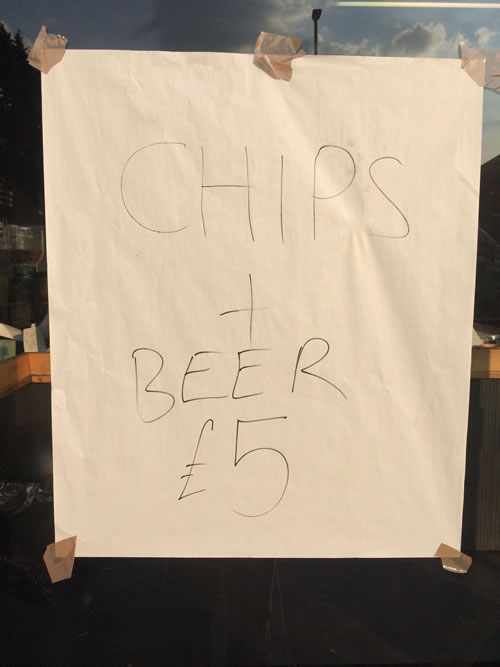 CHIPS
+
BEER
£5